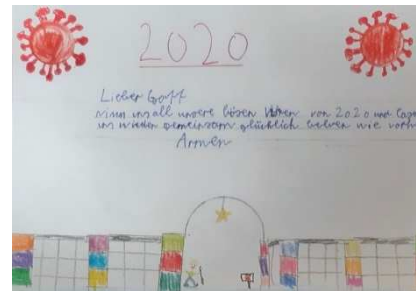 2020
Lieber Gott
nimm uns all unsere bösen von 2020 und
uns wieder gemeinsam glücklich leben wie
Armen